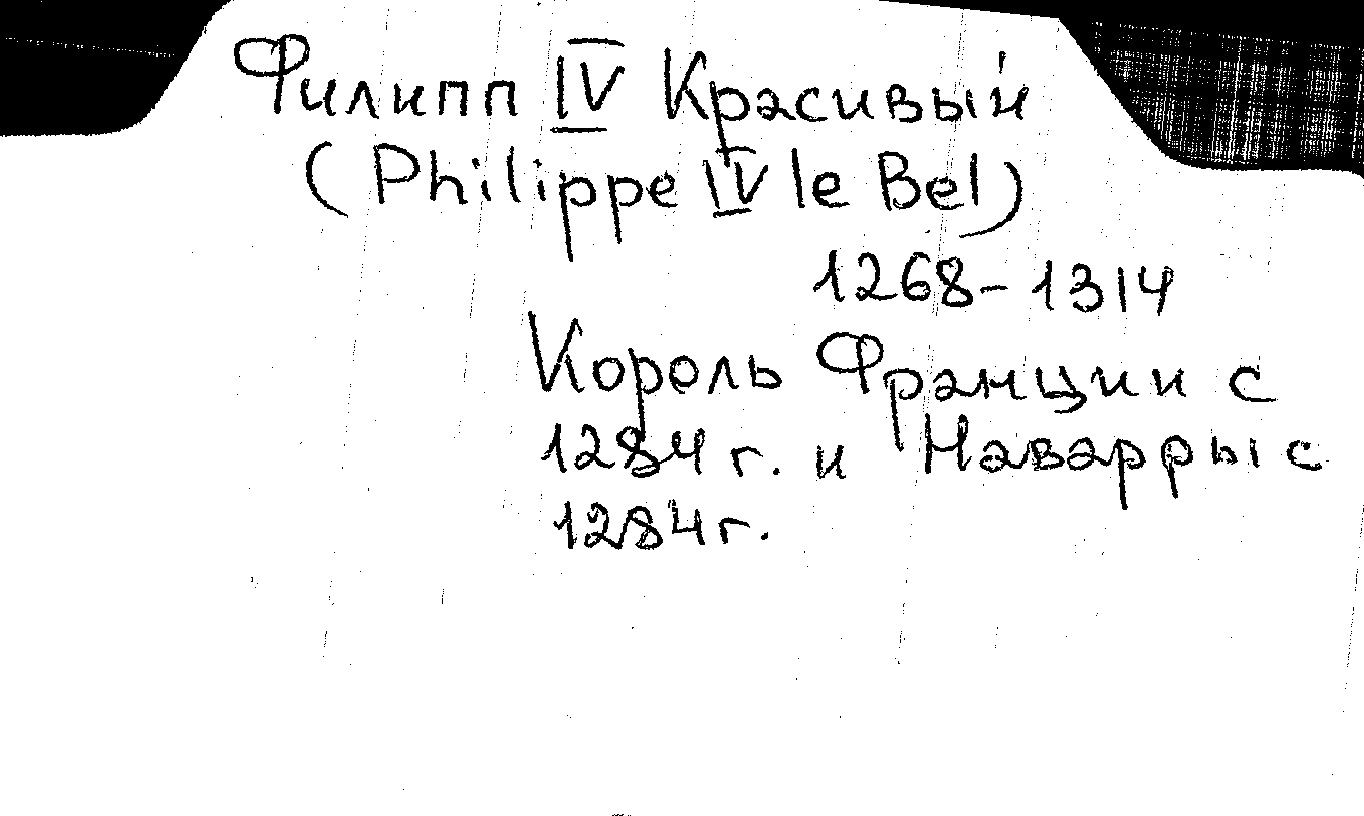 Филипп IV Красивый
(Philippe IV le Bel)
1268-1314
Король Франции с
1284 г. и Наварры с
1284 г.